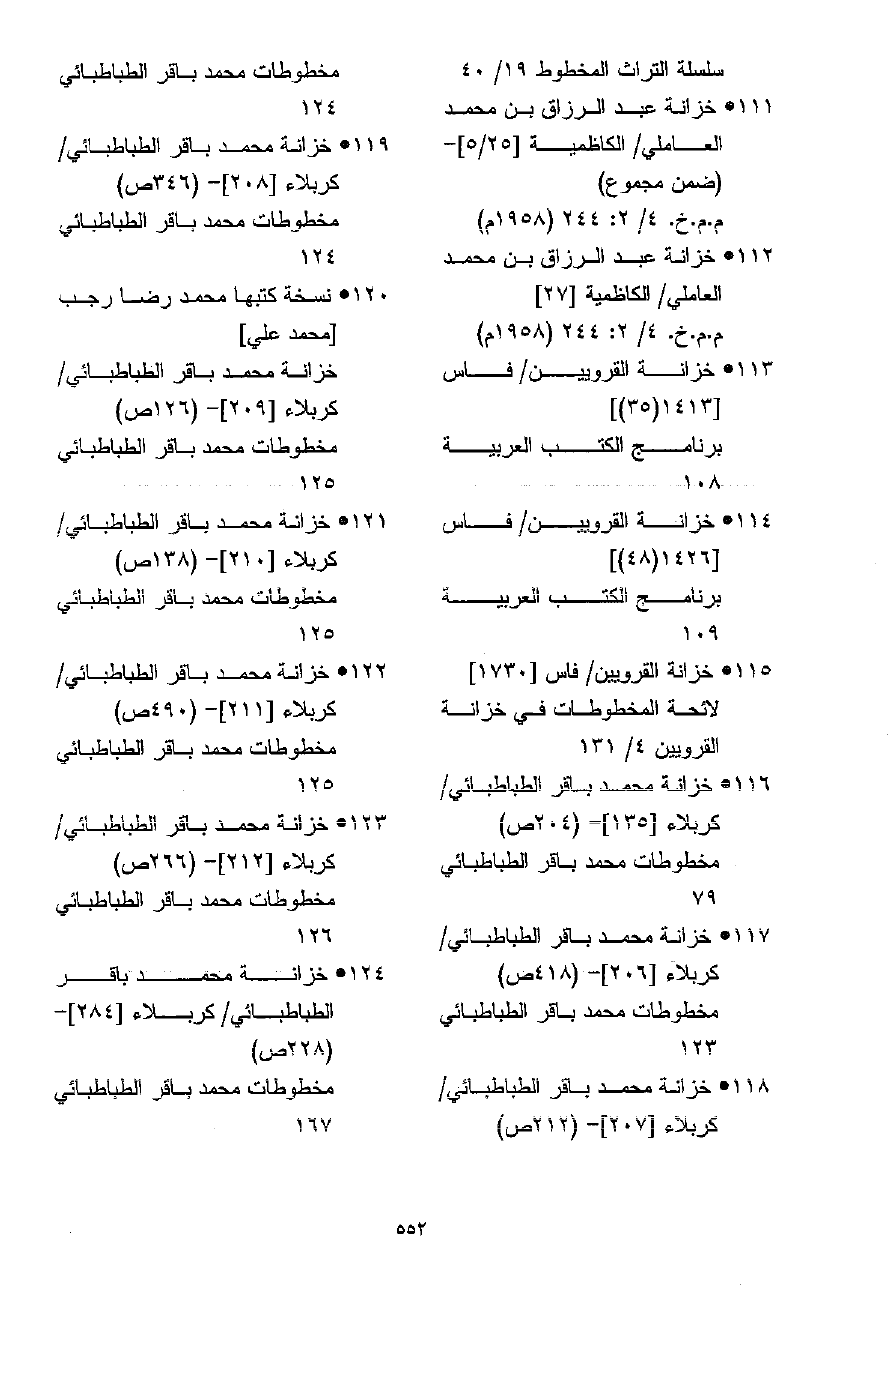 سلسلة التراث المخطوط ١٩/ ٤٠
١١١• خزانة عبد الرزاق بن محمد
العاملي/ الكاظمية [٥/٢٥]-
(ضمن مجموع)
م.م.خ. ٤/ ٢: ٢٤٤ (١٩٥٨م)
١١٢• خزانة عبد الرزاق بن محمد
العاملي/ الكاظمية [٢٧]
م.م.خ. ٤/ ٢: ٢٤٤ (١٩٥٨م)
١١٣• خزانة القرويين/ فاس
[١٤١٣(٣٥)]
برنامج الكتب العربية
١٠٨
١١٤• خزانة القرويين/ فاس
[١٤٢٦(٤٨)]
برنامج الكتب العربية
١٠٩
١١٥• خزانة القرويين/ فاس [١٧٣٠]
لائحة المخطوطات في خزانة
القرويين ٤/ ١٣١
١١٦• خزانة محمد باقر الطباطبائي/
كربلاء [١٣٥]- (٢٠٤ص)
مخطوطات محمد باقر الطباطبائي
٧٩
١١٧• خزانة محمد باقر الطباطبائي/
كربلاء [٢٠٦]- (٤١٨ص)
مخطوطات محمد باقر الطباطبائي
١٢٣
١١٨• خزانة محمد باقر الطباطبائي/
كربلاء [٢٠٧]- (٢١٢ص)
مخطوطات محمد باقر الطباطبائي
١٢٤
١١٩• خزانة محمد باقر الطباطبائي/
كربلاء [٢٠٨]- (٣٤٦ص)
مخطوطات محمد باقر الطباطبائي
١٢٤
١٢٠• نسخة كتبها محمد رضا رجب
[محمد علي]
خزانة محمد باقر الطباطبائي/
كربلاء [٢٠٩]- (١٢٦ص)
مخطوطات محمد باقر الطباطبائي
١٢٥
١٢١• خزانة محمد باقر الطباطبائي/
كربلاء [٢١٠]- (١٣٨ص)
مخطوطات محمد باقر الطباطبائي
١٢٥
١٢٢• خزانة محمد باقر الطباطبائي/
كربلاء [٢١١]- (٤٩٠ص)
مخطوطات محمد باقر الطباطبائي
١٢٥
١٢٣• خزانة محمد باقر الطباطبائي/
كربلاء [٢١٢]- (٢٦٦ص)
مخطوطات محمد باقر الطباطبائي
١٢٦
١٢٤• خزانة محمد باقر
الطباطبائي/ كربلاء [٢٨٤]-
(٢٢٨ص)
مخطوطات محمد باقر الطباطبائي
١٦٧
٥٥٢